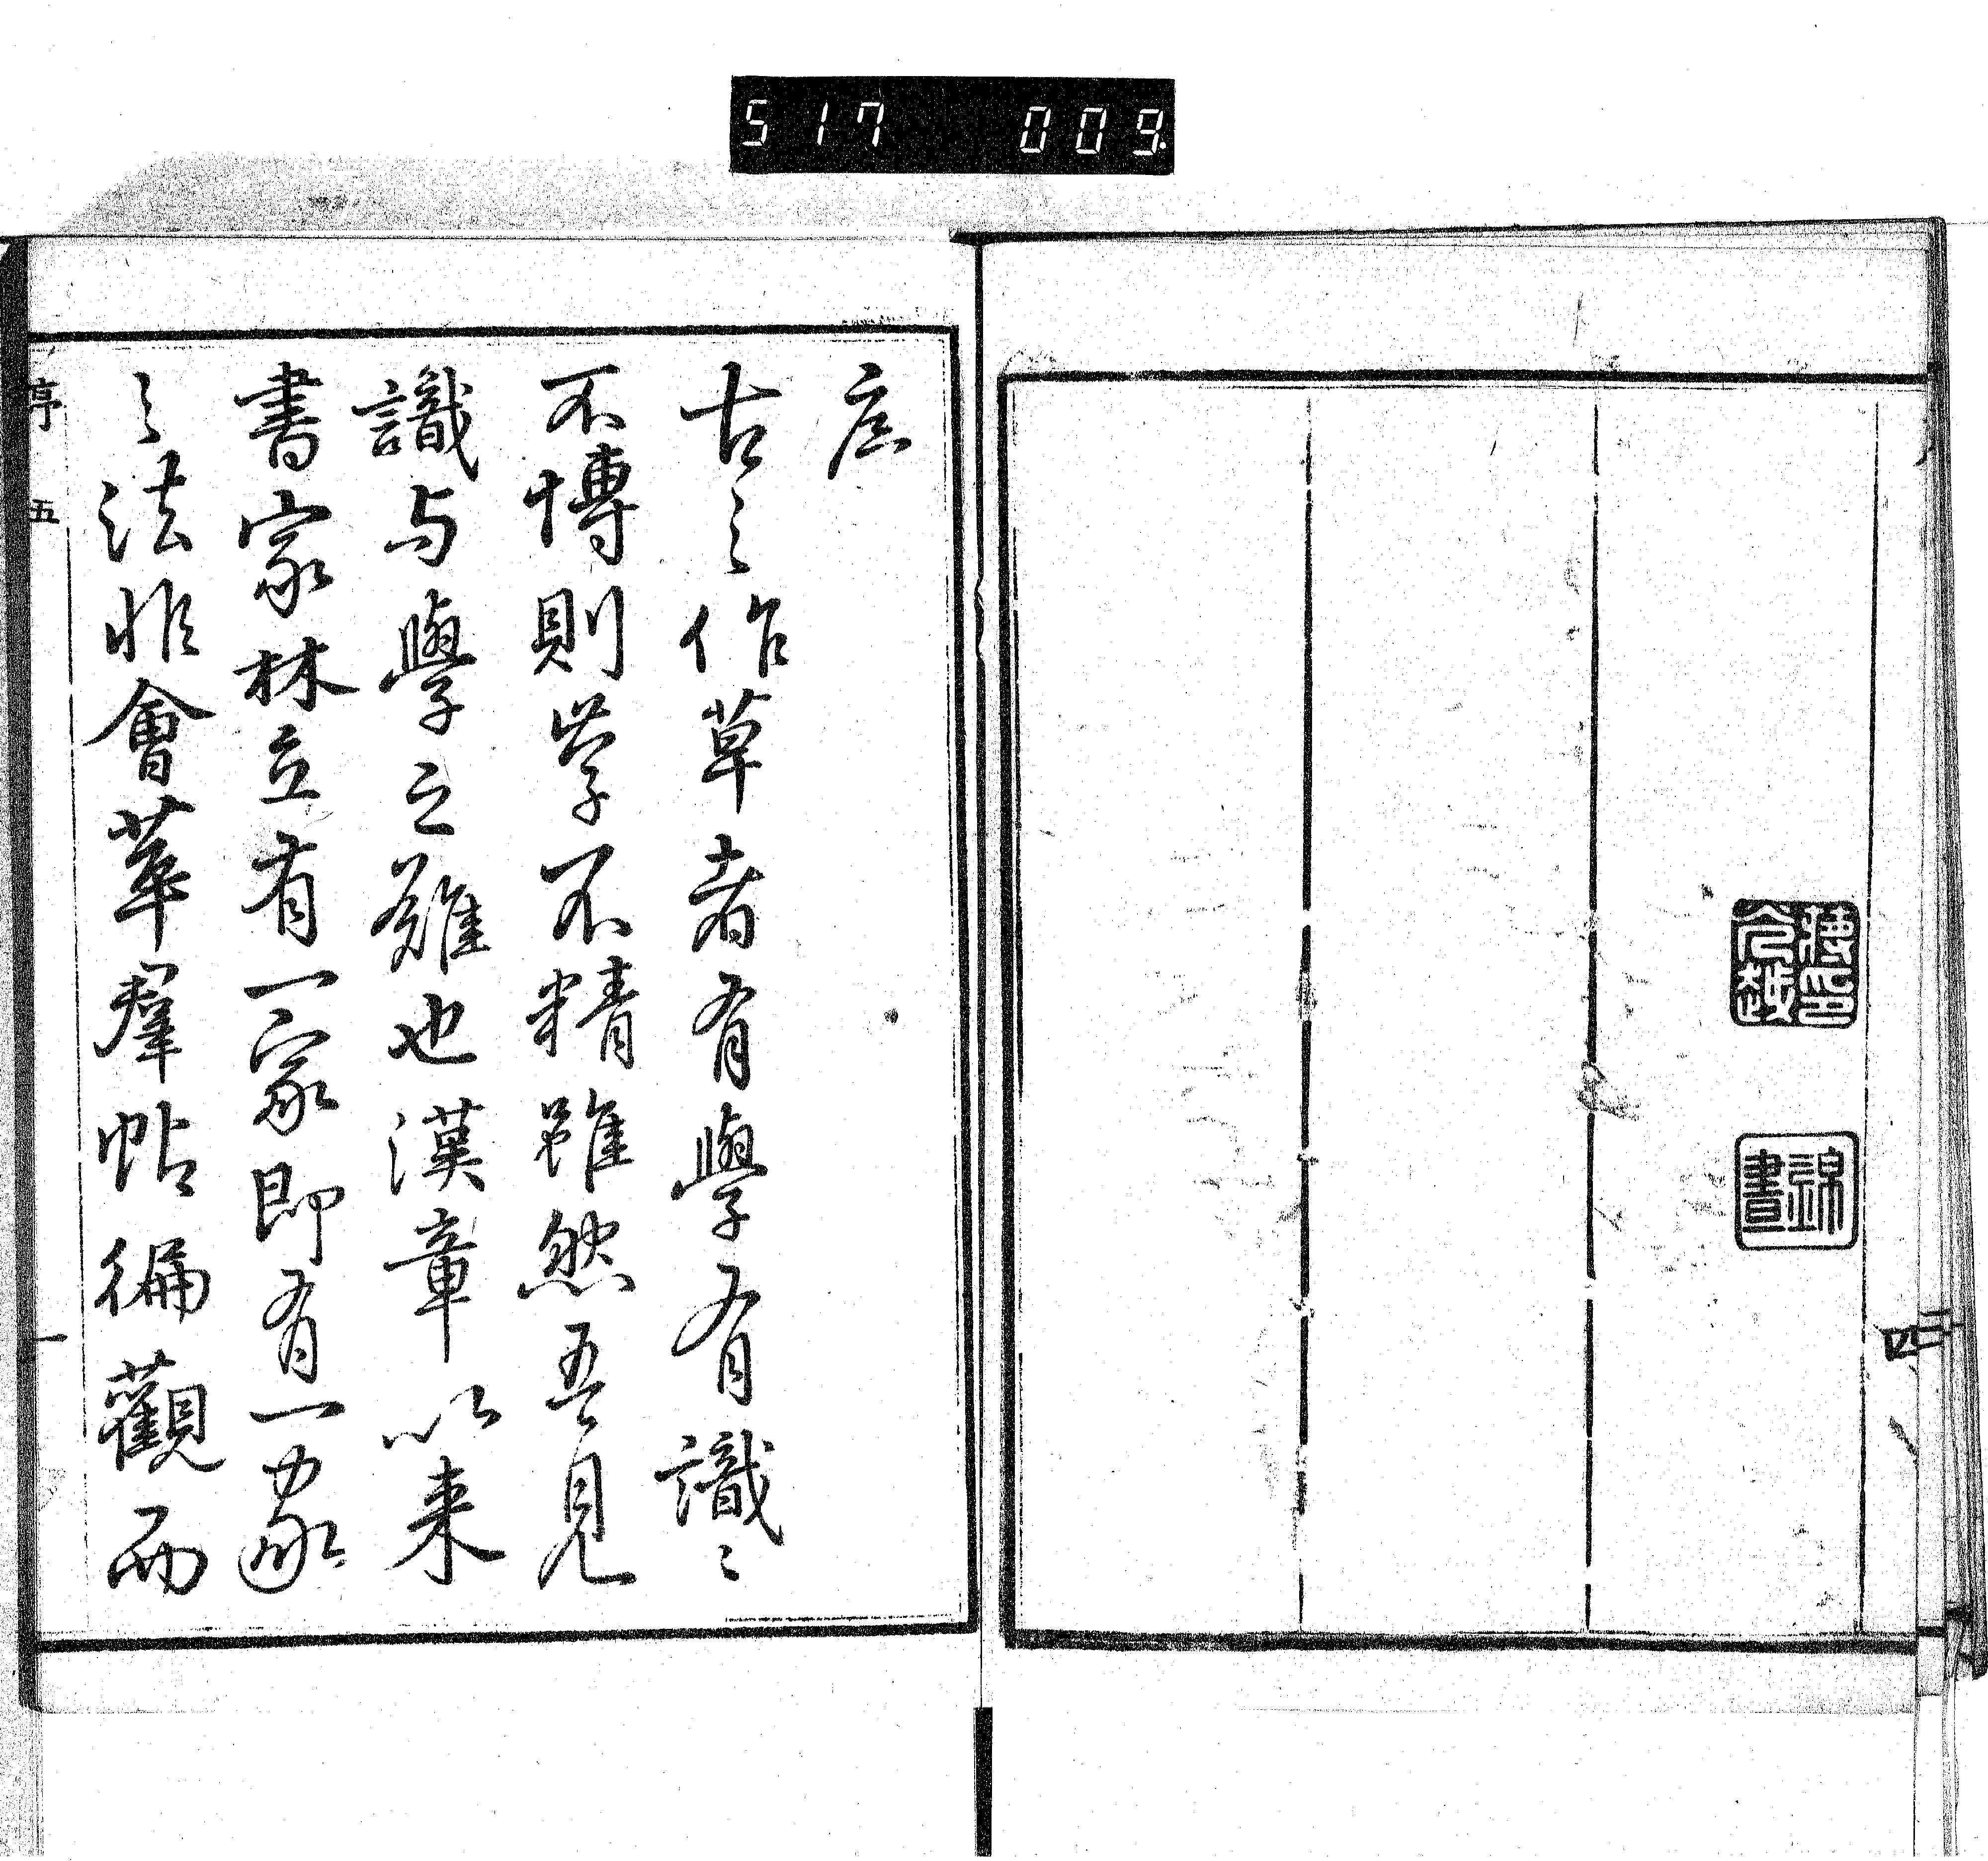 517 009
四
錦書
序
古之作草者有學有識〻
不博則学不精雖然吾見
識与學之難也漢章以来
書家林立有一家即有一家
之法非會萃羣帖徧觀而
序 五
一